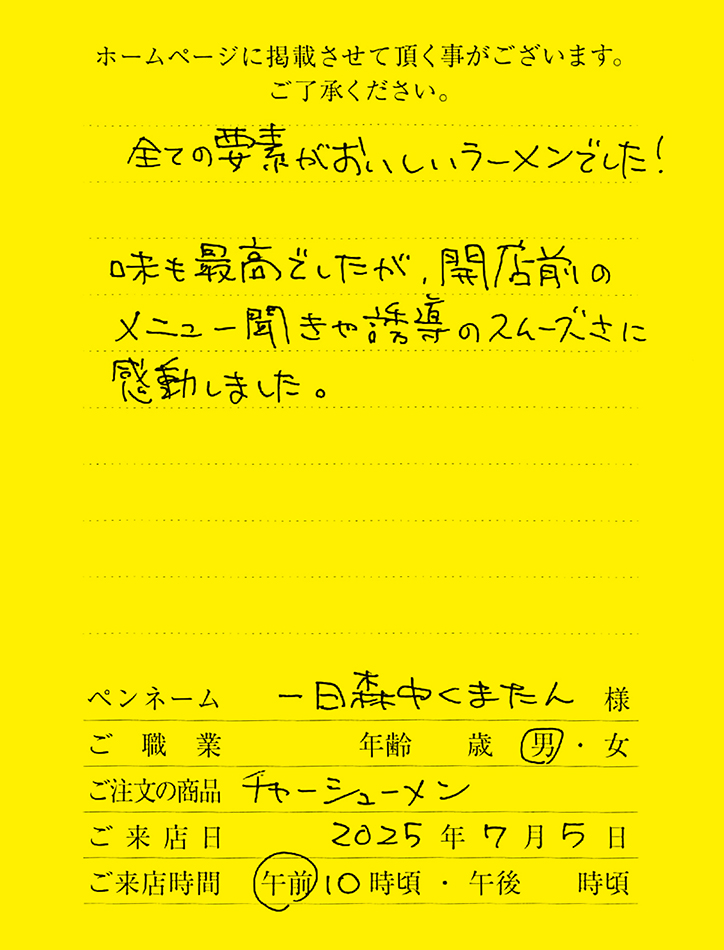 ホームページに掲載させて頂く事がございます。
ご了承ください。
全ての要素がおいしいラーメンでした！
味も最高でしたが、開店前の
メニュー聞きや誘導のスムーズさに
感動しました。
ペンネーム 一日森中くまたん 様
ご職業 年齢 歳 男・女
ご注文の商品 チャーシューメン
ご来店日 2025年7月5日
ご来店時間 午前10時頃・午後 時頃